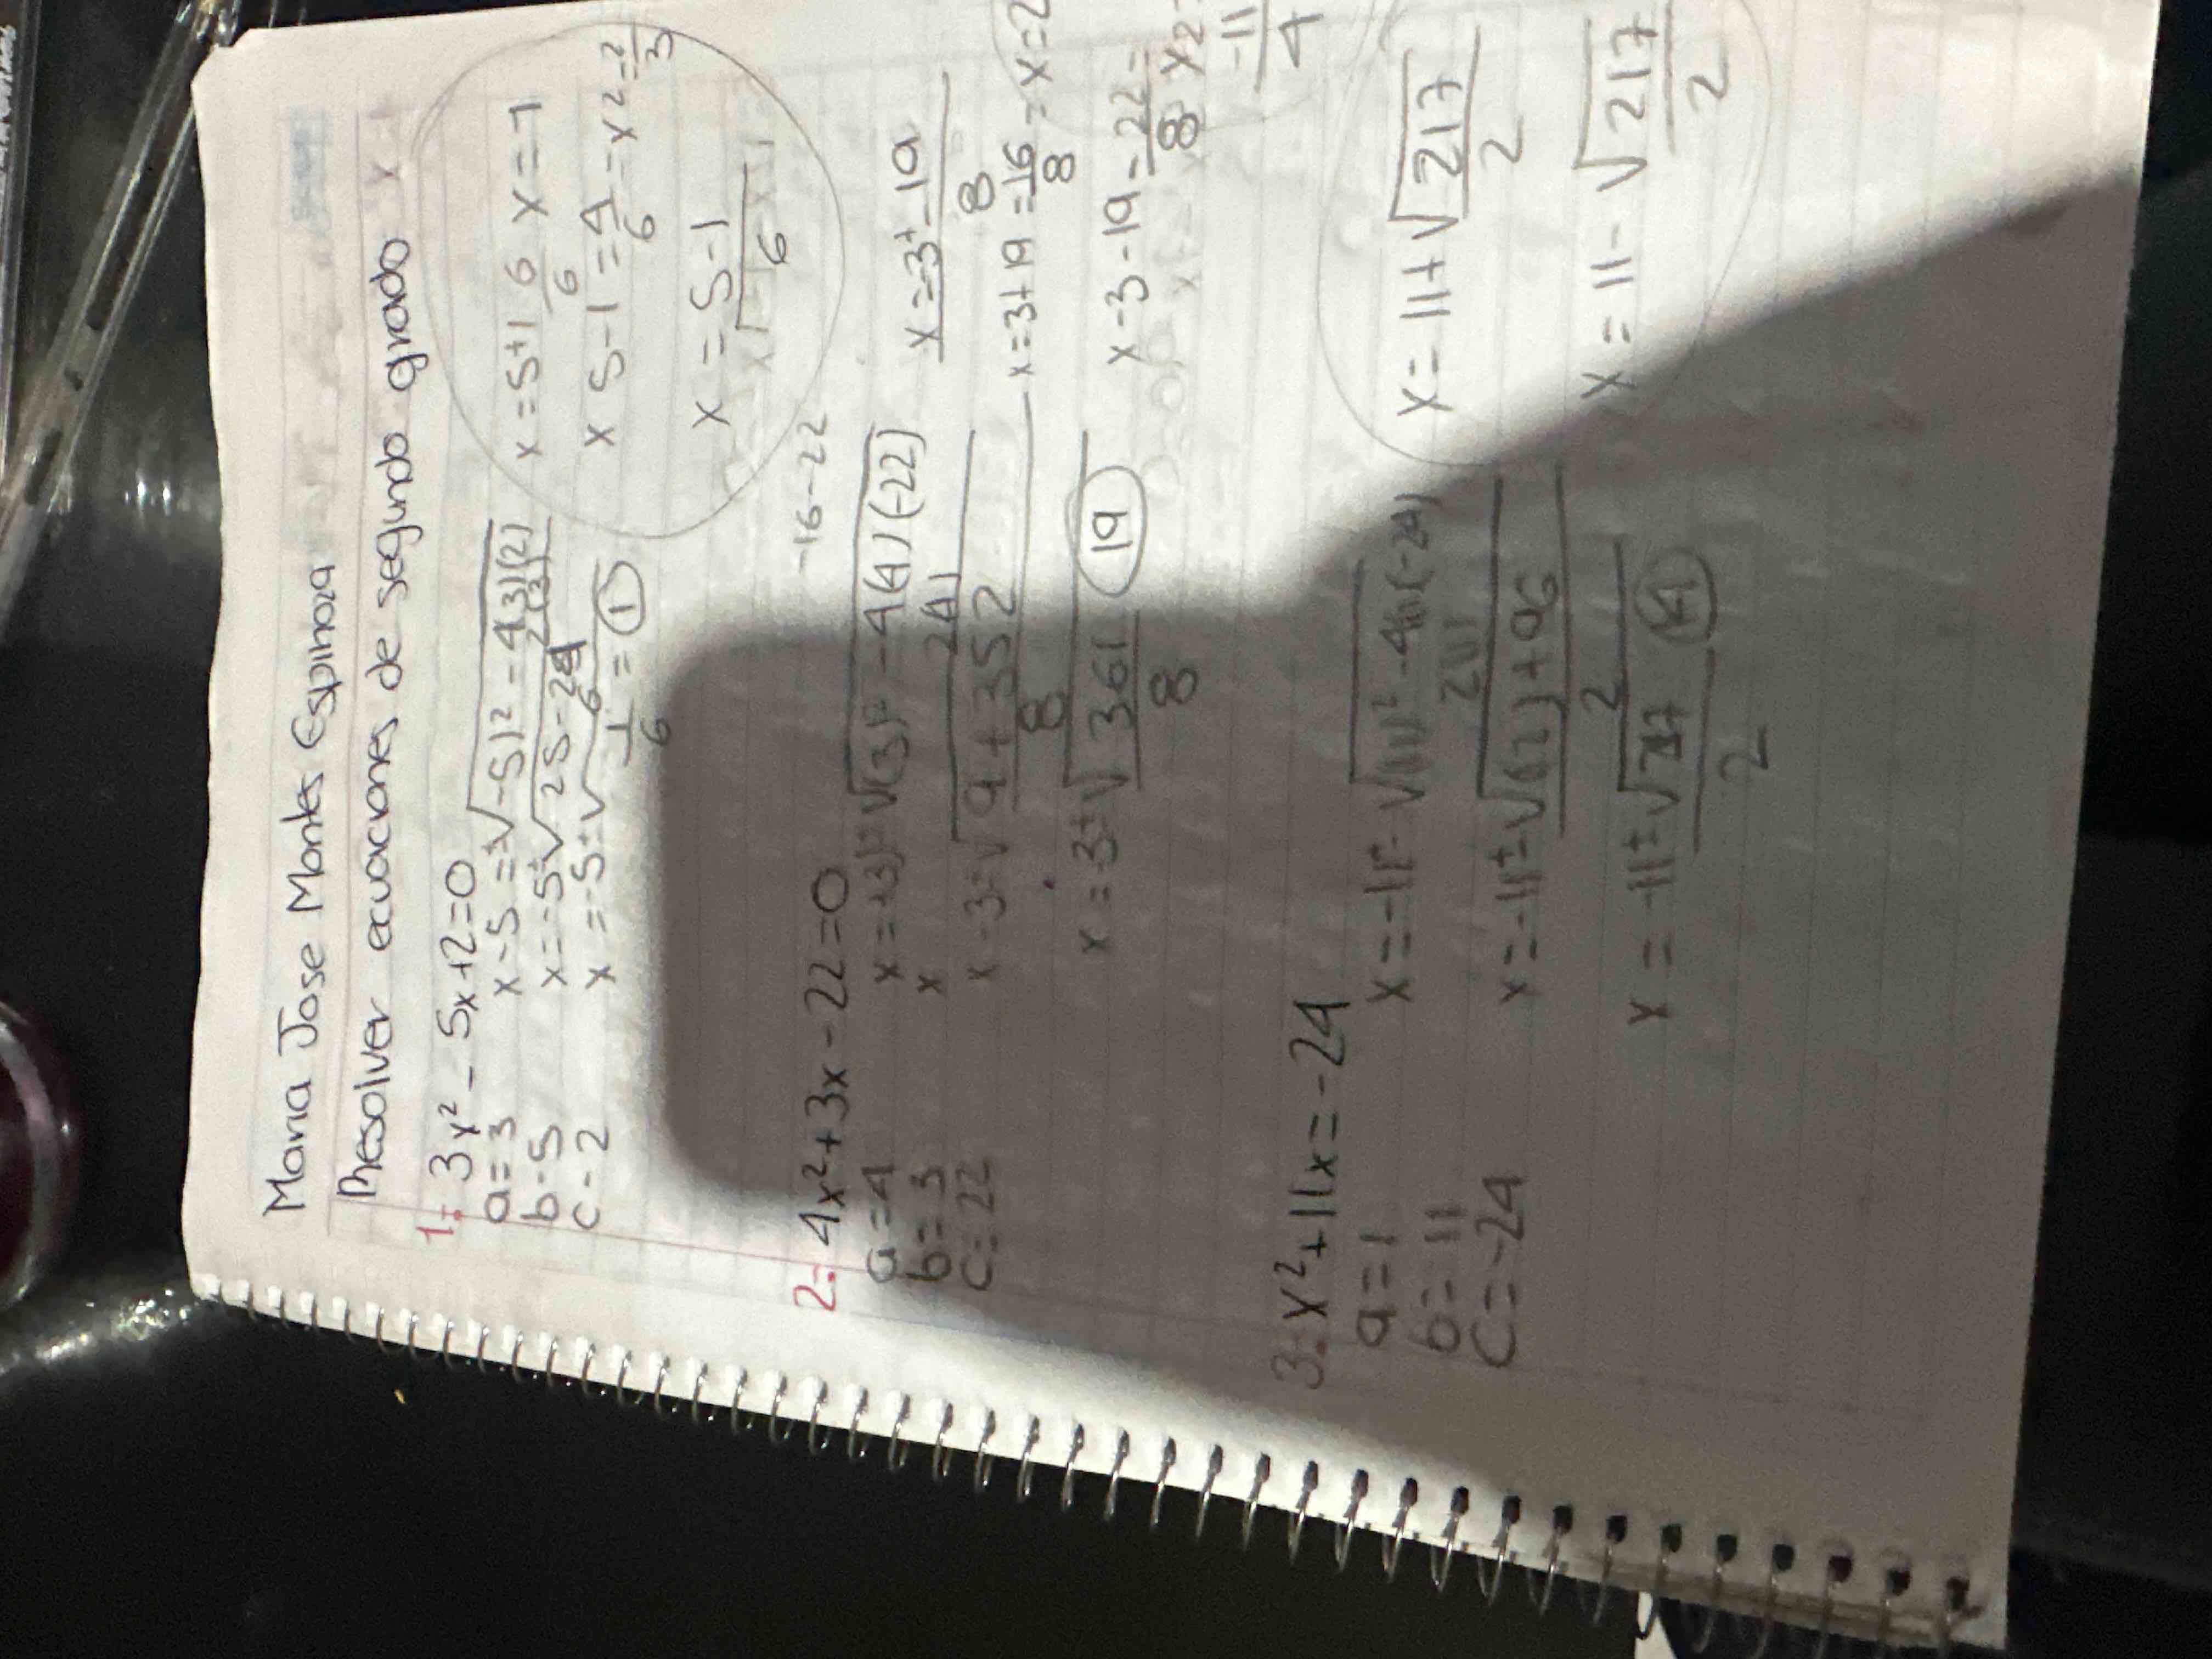 Maria Jose Montes Espinoza
Resolver ecuaciones de segundo grado
1.- 3x² - 5x+2=0
a=3
b-5
c-2
x-5=±√-5)²-4(3)(2)
2(3)
x=-5±√25-24
6
x=-5±√1 = 1
6
x=5+1 6 x=1
6
x 5-1=4=x²=2
6 3
x=5-1
6
-16-22
2.- 4x²+3x-22=0
a=4
b=3
c=22
x=+3)±√(3)²-4(4)(-22)
x 2(4)
x-3±√9+352
8
x=3±√361 19
8
x=-3±-19
8
x=3+19=16=x=2
8
x-3-19=22=
8 x2
-11
4
3.- x²+11x=-24
a=1
b=11
c=-24
x=-11-√(11)²-4(1)(-24)
2(1)
x=-11±√(2)+96
2
x=-11±√217
2
x=11+√217
2
x=11-√217
2